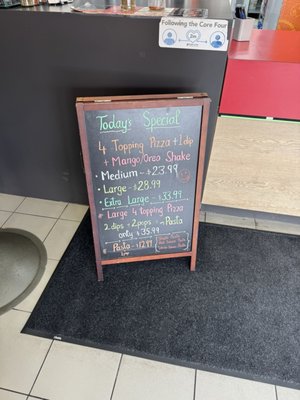 Following the Core Four
2m
Today's Special
4 Topping Pizza + 1 dip
+ Mango/Oreo Shake
• Medium - $23.99
• Large - $28.99
• Extra Large - $33.99
# Large 4 topping Pizza
2 dips + 2 pops - Pasta
only $35.99
# Pasta - $12.99